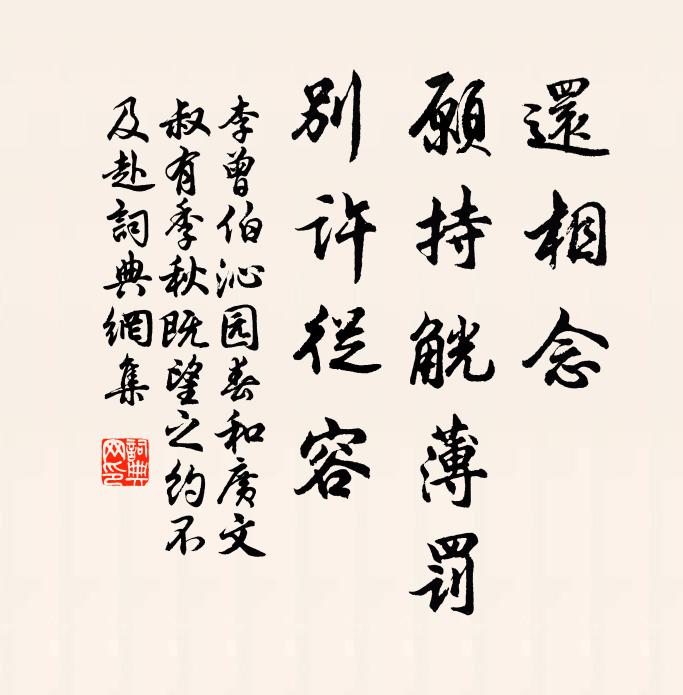 還相念
願持觥薄罰
別許從容
李曾伯沁园春和廣文
叔有季秋既望之約不
及赴詞典網集
詞典网印